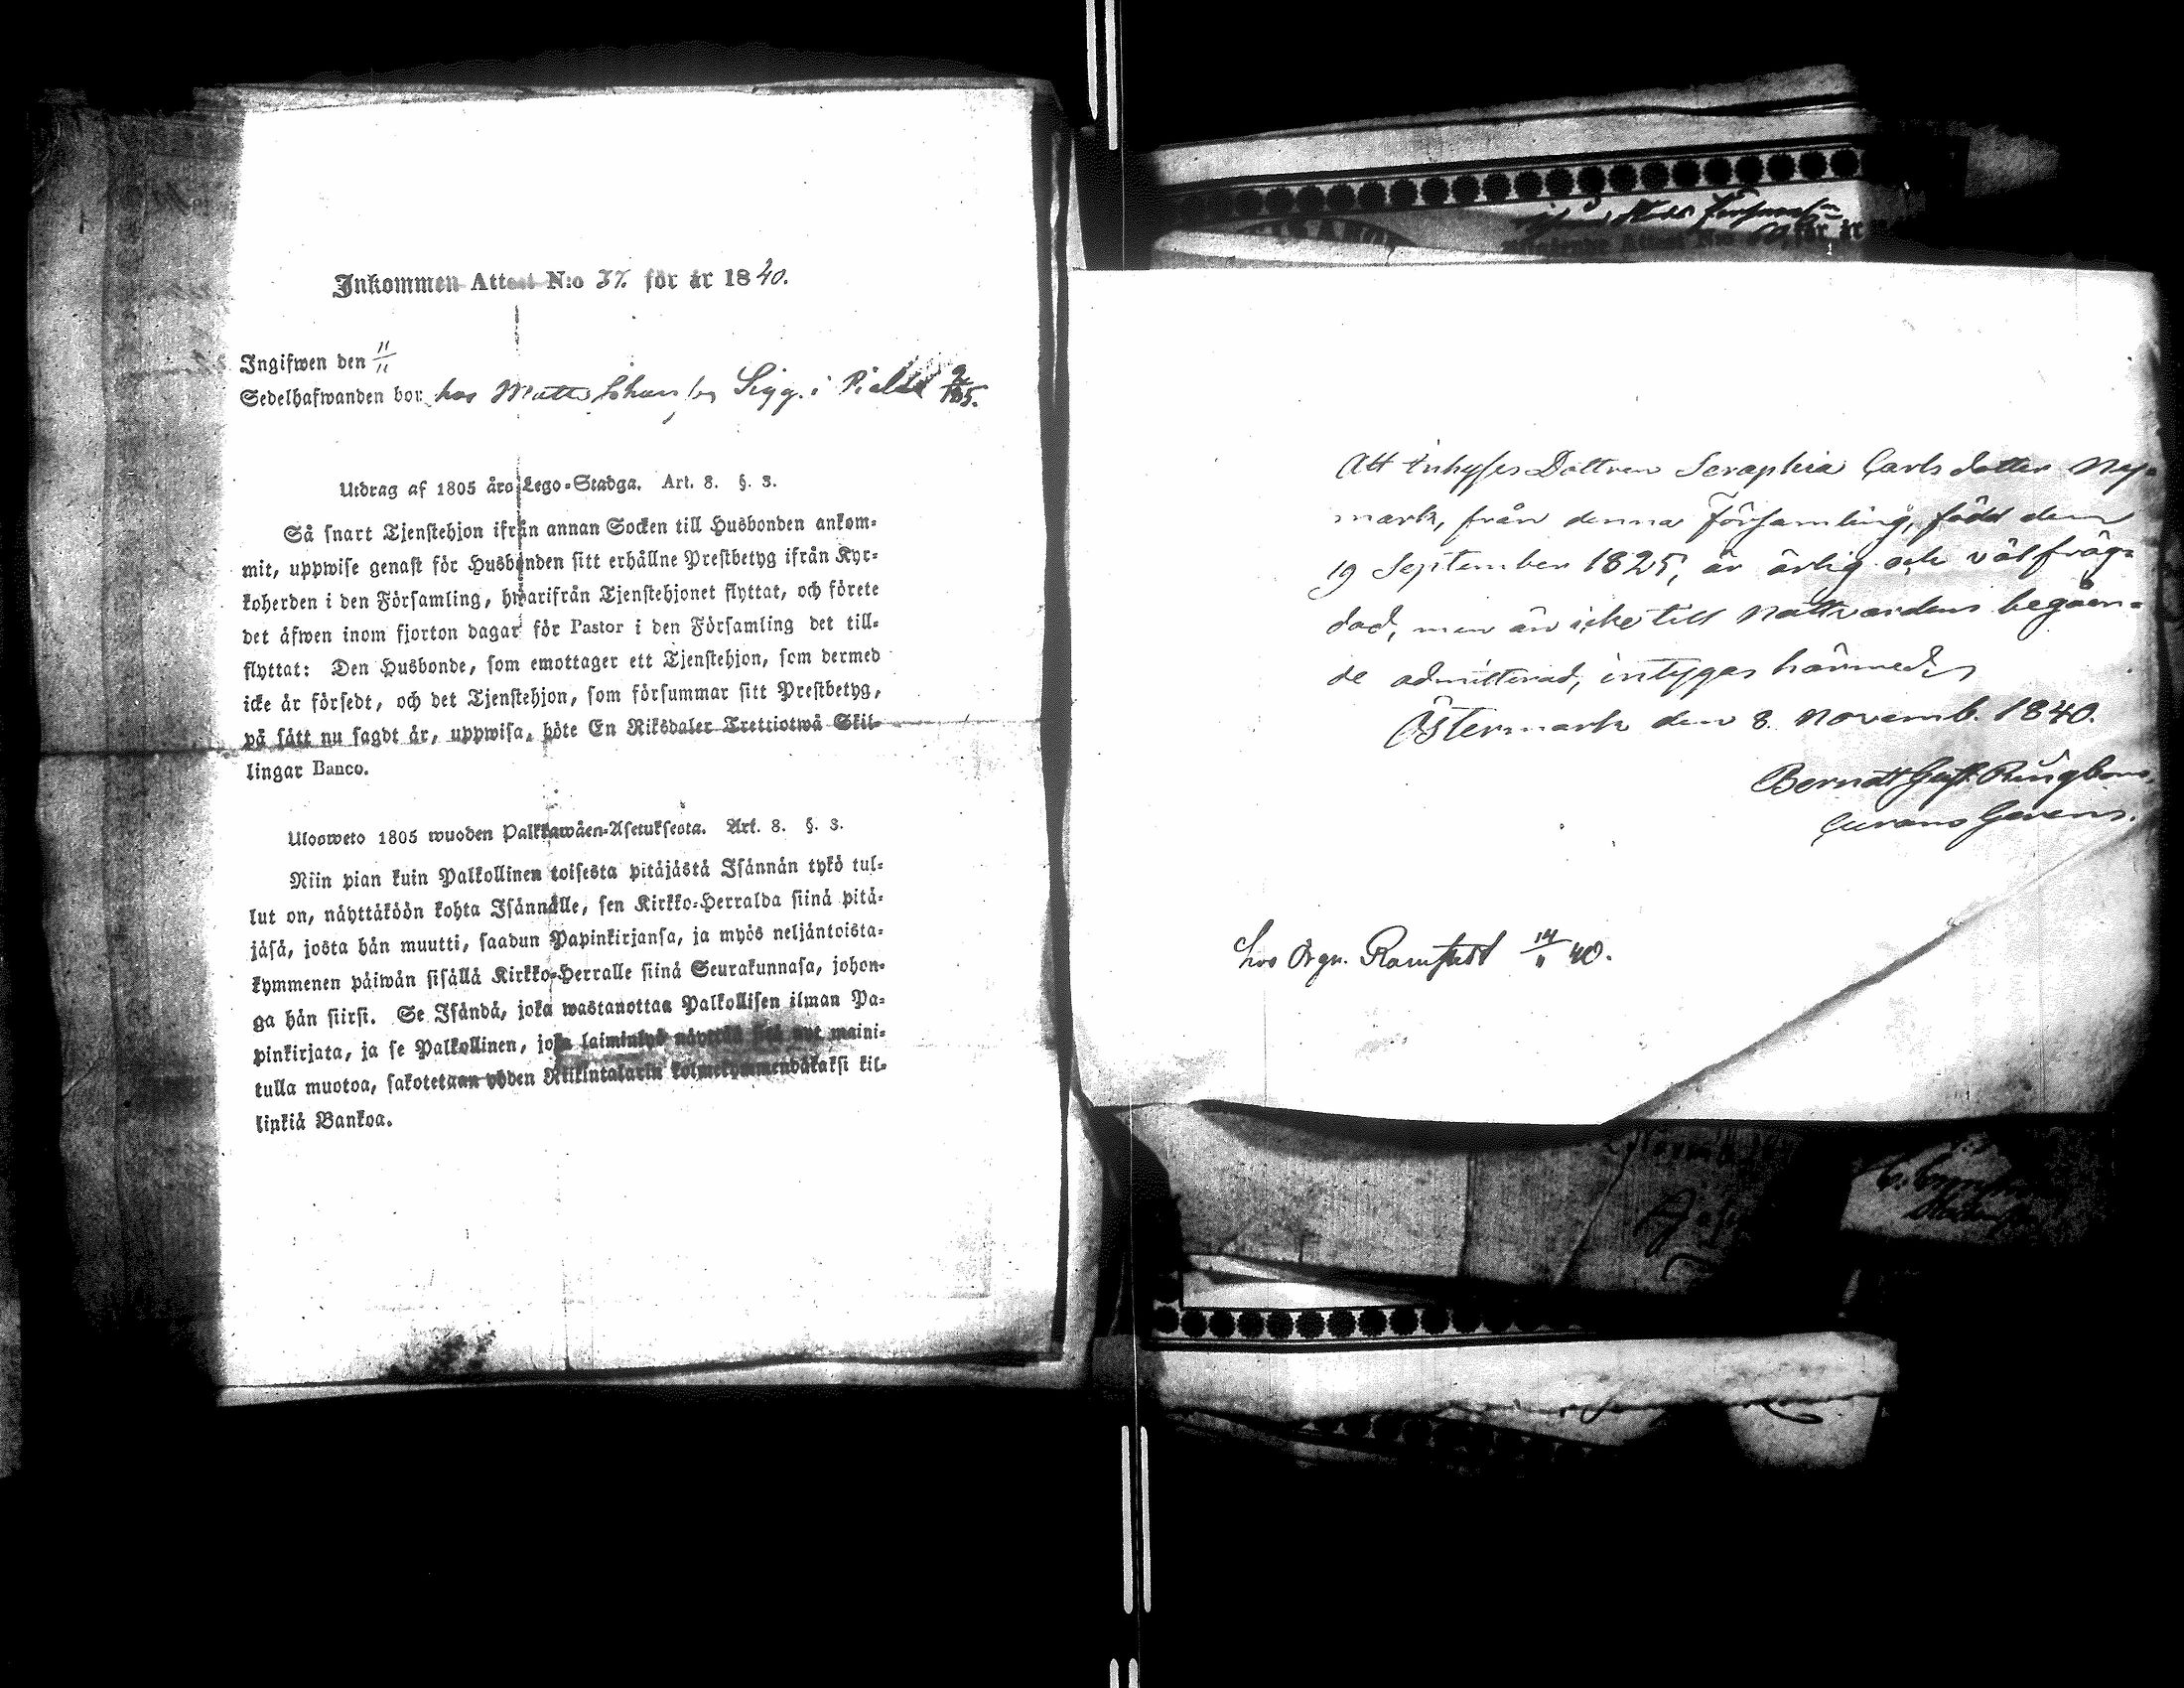 Inkommen Attest N:o 37. för år 1840.
Ingifwen den 11/11
Sedelhafwanden bor hos Matts Sigg. i
Utdrag af 1805 års Lego-Stadga. Art. 8. §. 3.
Så snart Tjenstehjon ifrån annan Socken till Husbonden ankom-
mit, uppwise genast för Husbonden sitt erhållne Prestbetyg ifrån Kyr-
koherden i den Församling, hwarifrån Tjenstehjonet flyttat, och förete
det äfwen inom fjorton dagar för Pastor i den Församling det till-
flyttat: Den Husbonde, som emottager ett Tjenstehjon, som dermed
icke är försedt, och det Tjenstehjon, som försummar sitt Prestbetyg,
på sätt nu sagdt är, uppwisa, böte En Riksdaler Trettiotwå Skil-
lingar Banco.
Ulosweto 1805 wuoden Palkkawäen-Asetuksesta. Art. 8. §. 3.
Niin pian kuin Palkollinen toisesta pitäjästä Isännän tykö tul-
lut on, näyttäköön kohta Isännälle, sen Kirkko-Herralda siinä pitä-
jäsä, josta hän muutti, saadun Papinkirjansa, ja myös neljäntoista-
kymmenen päiwän sisällä Kirkko-Herralle siinä Seurakunnasa, johon-
ga hän siirsi. Se Isändä, joka wastanottaa Palkollisen ilman Pa-
pinkirjata, ja se Palkollinen, joka laiminlyö näyttää sitä nyt maini-
tulla muotoa, sakotetaan yhden Riikintalarin kolmekymmendäkaksi kil-
linkiä Bankoa.
Att Inhyses Dottren Seraphia Carlsdotter Ny-
mark, från denna Församling, född den
19 September 1825, är ärlig och välfräg-
dad, men än icke till Nattvardens begåen-
de admitterad, intygas härmed,
Östermark den 8. Novemb. 1840.
Berndt Gust. Ringbom.
Curans Gerens.
hos Orgn. Ramstedt 14/11 40.